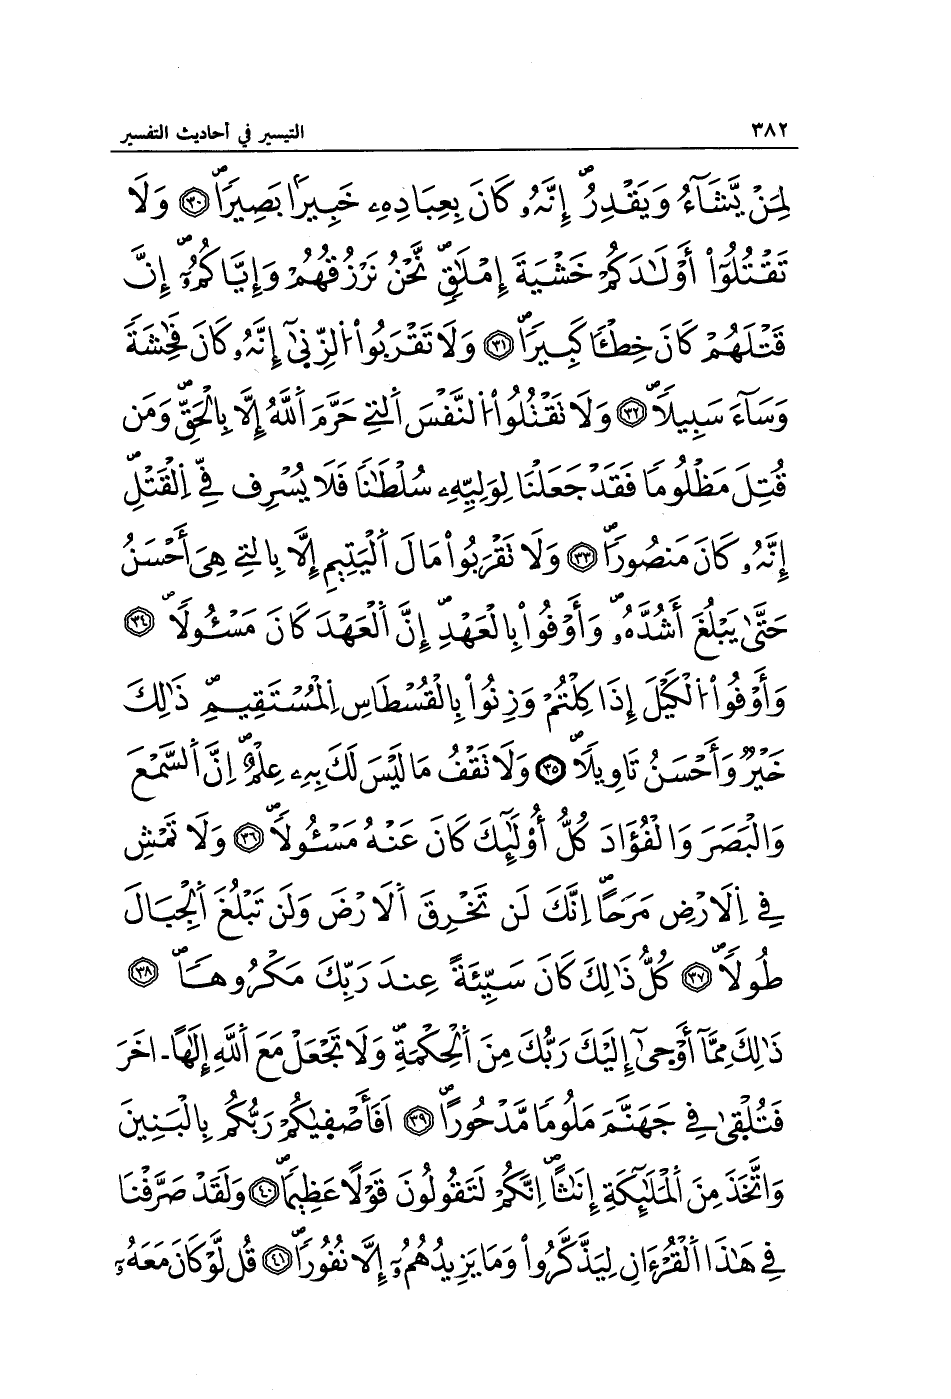 ٣٨٢ التيسير في أحاديث التفسير
لِمَنْ يَّشَآءُ وَيَقْدِرُۖ إِنَّهُۥ كَانَ بِعِبَادِهِۦ خَبِيراَۢ بَصِيراًۖ ٣٠ وَلَا
تَقْتُلُوٓاْ أَوْلَٰدَكُمْ خَشْيَةَ إِمْلَٰقٖۖ نَّحْنُ نَرْزُقُهُمْ وَإِيَّاكُمُۥٓۖ إِنَّ
قَتْلَهُمْ كَانَ خِطْـٔاٗ كَبِيراٗۖ ٣١ وَلَا تَقْرَبُواْ اُ۬لزِّنَىٰٓ إِنَّهُۥ كَانَ فَٰحِشَةٗ
وَسَآءَ سَبِيلاٗۖ ٣٢ وَلَا تَقْتُلُواْ اُ۬لنَّفْسَ اَ۬لتِے حَرَّمَ اَ۬للَّهُ إِلَّا بِالْحَقِّۖ وَمَن
قُتِلَ مَظْلُوماٗ فَقَدْ جَعَلْنَا لِوَلِيِّهِۦ سُلْطَٰناٗ فَلَا يُسْرِف فِّے اِ۬لْقَتْلِۖ
إِنَّهُۥ كَانَ مَنصُوراٗۖ ٣٣ وَلَا تَقْرَبُواْ مَالَ اَ۬لْيَتِيمِ إِلَّا بِالتِے هِيَ أَحْسَنُ
حَتَّىٰ يَبْلُغَ أَشُدَّهُۥۖ وَأَوْفُواْ بِالْعَهْدِۖ إِنَّ اَ۬لْعَهْدَ كَانَ مَسْـُٔولاٗۖ ٣٤
وَأَوْفُواْ اُ۬لْكَيْلَ إِذَا كِلْتُمْ وَزِنُواْ بِالْقُسْطَاسِ اِ۬لْمُسْتَقِيمِۖ ذَٰلِكَ
خَيْرٞ وَأَحْسَنُ تَاوِيلاٗۖ ٣٥ وَلَا تَقْفُ مَا لَيْسَ لَكَ بِهِۦ عِلْمٌۖ اِنَّ اَ۬لسَّمْعَ
وَالْبَصَرَ وَالْفُؤَادَ كُلُّ أُوْلَٰٓئِكَ كَانَ عَنْهُ مَسْـُٔولاٗۖ ٣٦ وَلَا تَمْشِ
فِے اِ۬لَارْضِ مَرَحاًۖ اِنَّكَ لَن تَخْرِقَ اَ۬لَارْضَ وَلَن تَبْلُغَ اَ۬لْجِبَالَ
طُولاٗۖ ٣٧ كُلُّ ذَٰلِكَ كَانَ سَيِّئَةً عِندَ رَبِّكَ مَكْرُوهاٗۖ ٣٨
ذَٰلِكَ مِمَّآ أَوْحَىٰٓ إِلَيْكَ رَبُّكَ مِنَ اَ۬لْحِكْمَةِۖ وَلَا تَجْعَلْ مَعَ اَ۬للَّهِ إِلَٰهاً ـ اخَرَ
فَتُلْقَىٰ فِے جَهَنَّمَ مَلُوماٗ مَّدْحُوراًۖ ٣٩ اَفَأَصْفَىٰكُمْ رَبُّكُم بِالْبَنِينَ
وَاتَّخَذَ مِنَ اَ۬لْمَلَٰٓئِكَةِ إِنَٰثاًۖ اِنَّكُمْ لَتَقُولُونَ قَوْلًا عَظِيماٗۖ ٤٠ وَلَقَدْ صَرَّفْنَا
فِے هَٰذَا اَ۬لْقُرْءَانِ لِيَذَّكَّرُواْ وَمَا يَزِيدُهُمُۥٓ إِلَّا نُفُوراٗۖ ٤١ قُل لَّوْ كَانَ مَعَهُۥٓ